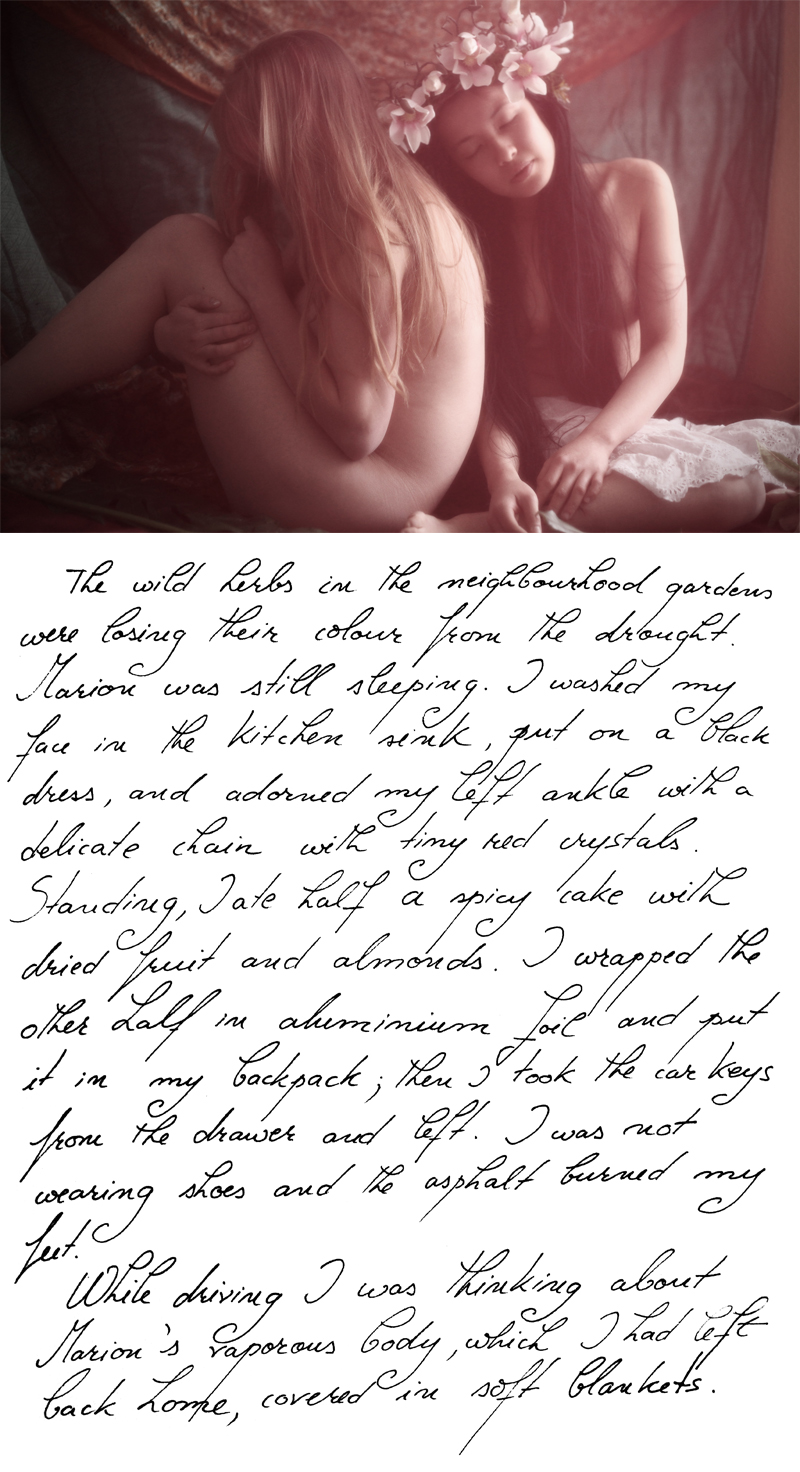 The wild herbs in the neighbourhood gardens
were losing their colour from the drought.
Marion was still sleeping. I washed my
face in the kitchen sink, put on a black
dress, and adorned my left ankle with a
delicate chain with tiny red crystals.
Standing, I ate half a spicy cake with
dried fruit and almonds. I wrapped the
other half in aluminium foil and put
it in my backpack; then I took the car keys
from the drawer and left. I was not
wearing shoes and the asphalt burned my
feet.
While driving I was thinking about
Marion's vaporous body, which I had left
back home, covered in soft blankets.